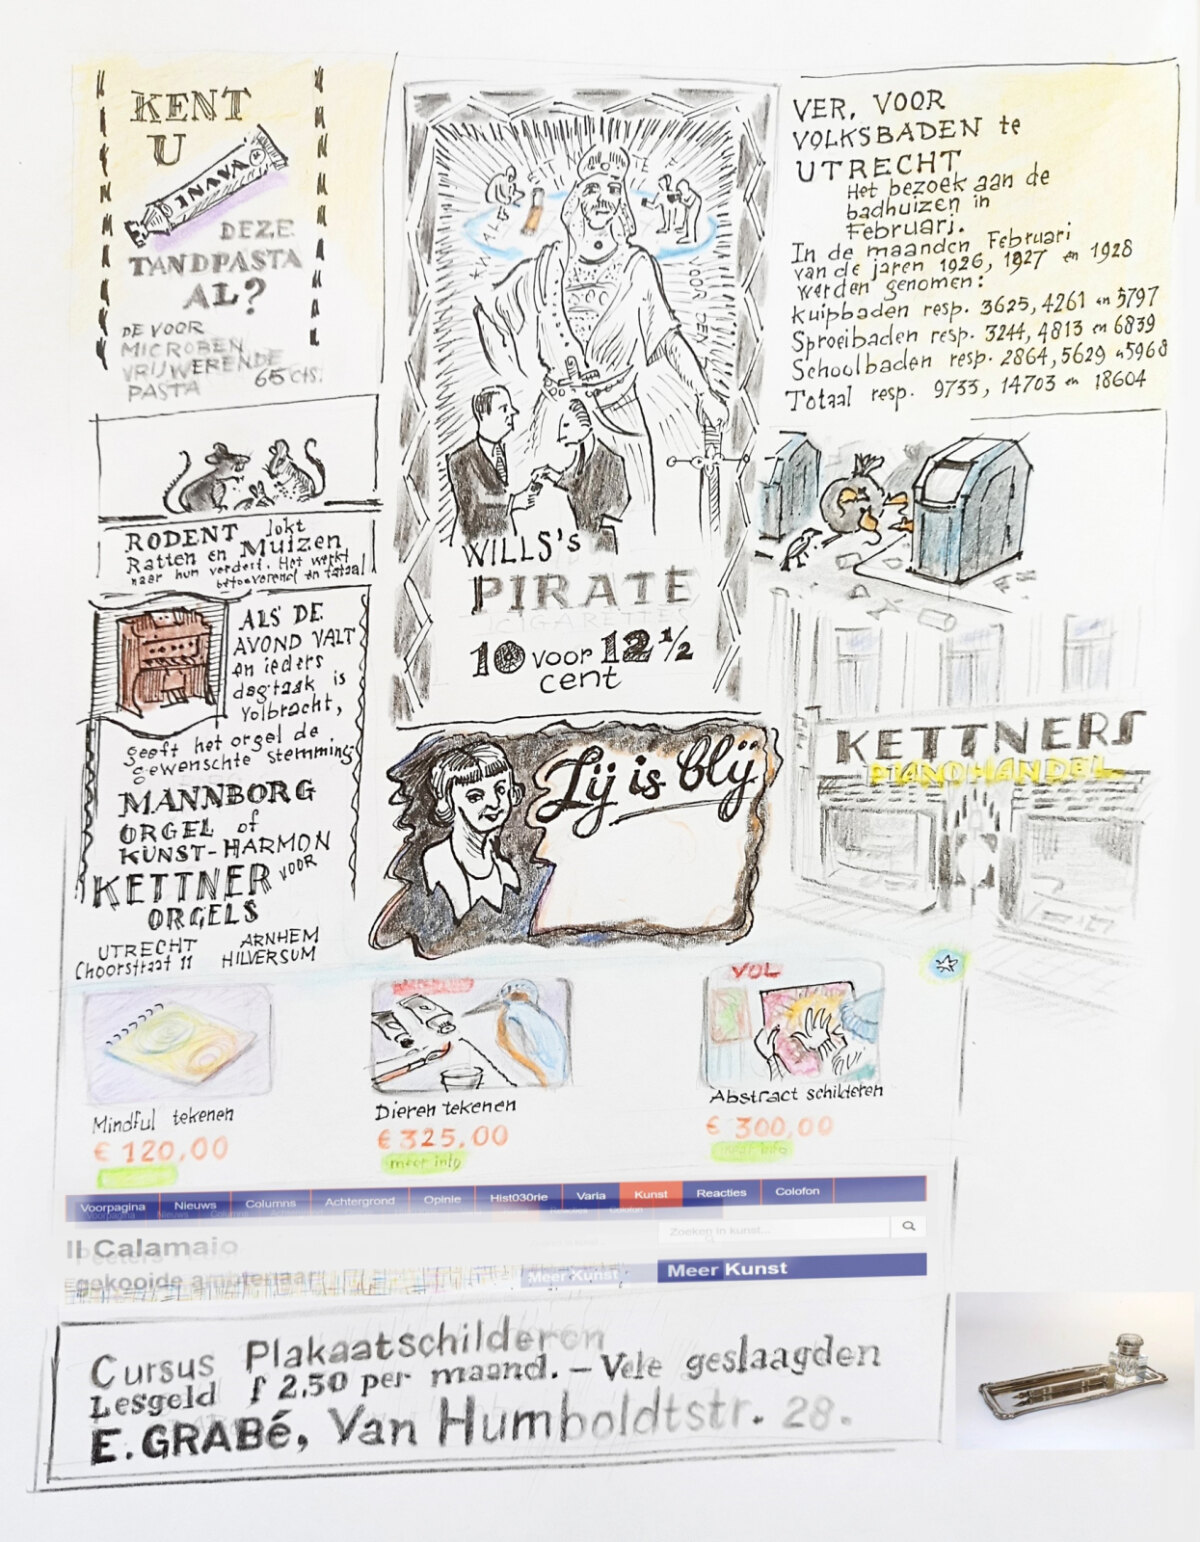 KENT
U
INAVA
DEZE
TANDPASTA
AL?
DE VOOR
MICROBEN
VRIJWERENDE
PASTA 65 cts.
RODENT lokt
Ratten en Muizen
naar hun verderf. Het werkt
betooverend en totaal
ALS DE
AVOND VALT
en ieders
dagtaak is
volbracht,
geeft het orgel de
gewenschte stemming
MANNBORG
ORGEL of
KUNST-HARMON
KETTNER VOOR
ORGELS
UTRECHT ARNHEM
Choorstraat 11 HILVERSUM
VOOR DEN
WILLS's
PIRATE
CIGARETTES
10 voor 12 1/2
cent
Zij is blij
VER. VOOR
VOLKSBADEN te
UTRECHT
Het bezoek aan de
badhuizen in
Februari.
In de maanden Februari
van de jaren 1926, 1927 en 1928
werden genomen:
Kuipbaden resp. 3625, 4261 en 5797
Sproeibaden resp. 3244, 4813 en 6839
Schoolbaden resp. 2864, 5629 en 5968
Totaal resp. 9733, 14703 en 18604
KETTNERS
PIANOHANDEL
VOL
Mindful tekenen
€ 120,00
Dieren tekenen
€ 325,00
meer info
Abstract schilderen
€ 300,00
meer info
Voorpagina Nieuws Columns Achtergrond Opinie Hist030rie Varia Kunst Reacties Colofon
Zoeken in kunst...
Il Calamaio
Peeters
gekooide ambtenaar
Meer Kunst
Meer Kunst
Cursus Plakaatschilderen
Lesgeld f 2.50 per maand. – Vele geslaagden
E. GRABé, Van Humboldtstr. 28.